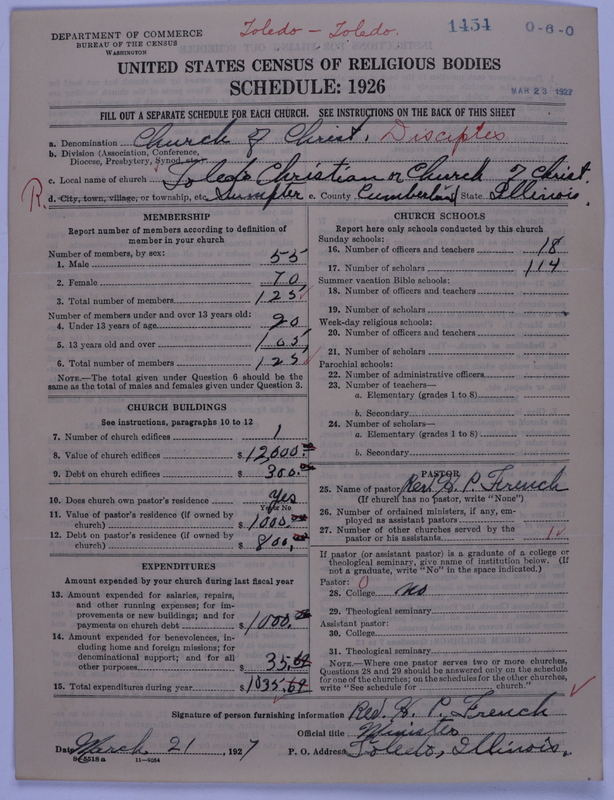 DEPARTMENT OF COMMERCE
BUREAU OF THE CENSUS
WASHINGTON
Toledo – Toledo.
1454
0-6-0
UNITED STATES CENSUS OF RELIGIOUS BODIES
SCHEDULE: 1926
MAR 23 1927
FILL OUT A SEPARATE SCHEDULE FOR EACH CHURCH. SEE INSTRUCTIONS ON THE BACK OF THIS SHEET
a. Denomination Church of Christ. Disciples
b. Division (Association, Conference, Diocese, Presbytery, Synod, etc.)
c. Local name of church Toledo Christian or Church of Christ
R. d. City, town, village, or township, etc. Sumpter e. County Cumberland State Illinois.
MEMBERSHIP
Report number of members according to definition of member in your church
Number of members, by sex:
1. Male 55
2. Female 70
3. Total number of members 125
Number of members under and over 13 years old:
4. Under 13 years of age 20
5. 13 years old and over 105
6. Total number of members 125
NOTE.—The total given under Question 6 should be the same as the total of males and females given under Question 3.
CHURCH BUILDINGS
See instructions, paragraphs 10 to 12
7. Number of church edifices 1
8. Value of church edifices $ 12,000.
9. Debt on church edifices $ 300.
10. Does church own pastor's residence Yes
Yes or No
11. Value of pastor's residence (if owned by church) $ 1000.
12. Debt on pastor's residence (if owned by church) $ 800.
EXPENDITURES
Amount expended by your church during last fiscal year
13. Amount expended for salaries, repairs, and other running expenses; for improvements or new buildings; and for payments on church debt $ 1000.
14. Amount expended for benevolences, including home and foreign missions; for denominational support; and for all other purposes $ 35.
15. Total expenditures during year $ 1035.
CHURCH SCHOOLS
Report here only schools conducted by this church
Sunday schools:
16. Number of officers and teachers 18
17. Number of scholars 114
Summer vacation Bible schools:
18. Number of officers and teachers
19. Number of scholars
Week-day religious schools:
20. Number of officers and teachers
21. Number of scholars
Parochial schools:
22. Number of administrative officers
23. Number of teachers—
a. Elementary (grades 1 to 8)
b. Secondary
24. Number of scholars—
a. Elementary (grades 1 to 8)
b. Secondary
PASTOR
25. Name of pastor Rev. H. P. French
(If church has no pastor, write "None")
26. Number of ordained ministers, if any, employed as assistant pastors
27. Number of other churches served by the pastor or his assistants 1
If pastor (or assistant pastor) is a graduate of a college or theological seminary, give name of institution below. (If not a graduate, write "No" in the space indicated.)
Pastor: 0
28. College no
29. Theological seminary
Assistant pastor:
30. College
31. Theological seminary
NOTE.—Where one pastor serves two or more churches, Questions 28 and 29 should be answered only on the schedule for one of the churches; on the schedules for the other churches, write "See schedule for church."
Signature of person furnishing information Rev. H. P. French
Official title Minister
Date March 21, 1927 P. O. Address Toledo, Illinois.
8-5518 a 11-9054